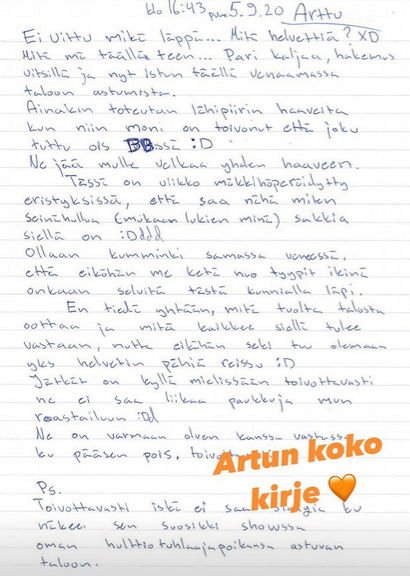 klo 16:43 pvm 5.9.20 Arttu
Ei vittu mikä läppä... Mitä helvettiä? XD
Mitä mä täällä teen... Pari kaljaa, hakemus
vitsillä ja nyt istun täällä venaamassa
taloon astumista.
Ainakin toteutan lähipiirin haaveita
kun niin moni on toivonut että joku
tuttu ois BBssä :D
Ne jää mulle velkaa yhden haaveen.
Tässä on viikko mökkihöperöidytty
eristyksissä, että saa nähä miten
seinähullua (mukaan lukien minä) sakkia
siellä on :Dddd
Ollaan kumminki samassa veneessä,
että eiköhän me ketä nuo tyypit ikinä
onkaan selvitä tästä kunnialla läpi.
En tiedä yhtään, mitä tuolta talosta
oottaa ja mitä kaikkee siellä tulee
vastaan, mutta eiköhän seki tuu olemaan
yks helvetin pähiä reissu :D
Jätkät on kyllä mielissään toivottavasti
ne ei saa liikaa paukkuja mun
roastailuun :Dd
Ne on varmaan oluen kanssa vastassa
ku pääsen pois,
Artun koko
kirje 🧡
Ps.
Toivottavasti iskä ei saa ku
näkee sen suosikki showssa
oman hulttiotuhlaajapoikansa astuvan
taloon.